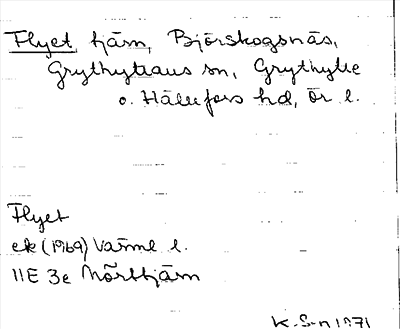 Flyet, tjärn, Björskogsnäs,
Grythyttans sn, Grythytte
o. Hällefors hd, Ör l.
Flyet
ek (1969) Värml l.
11E 3e Norrtjärn
K-S-n 1971